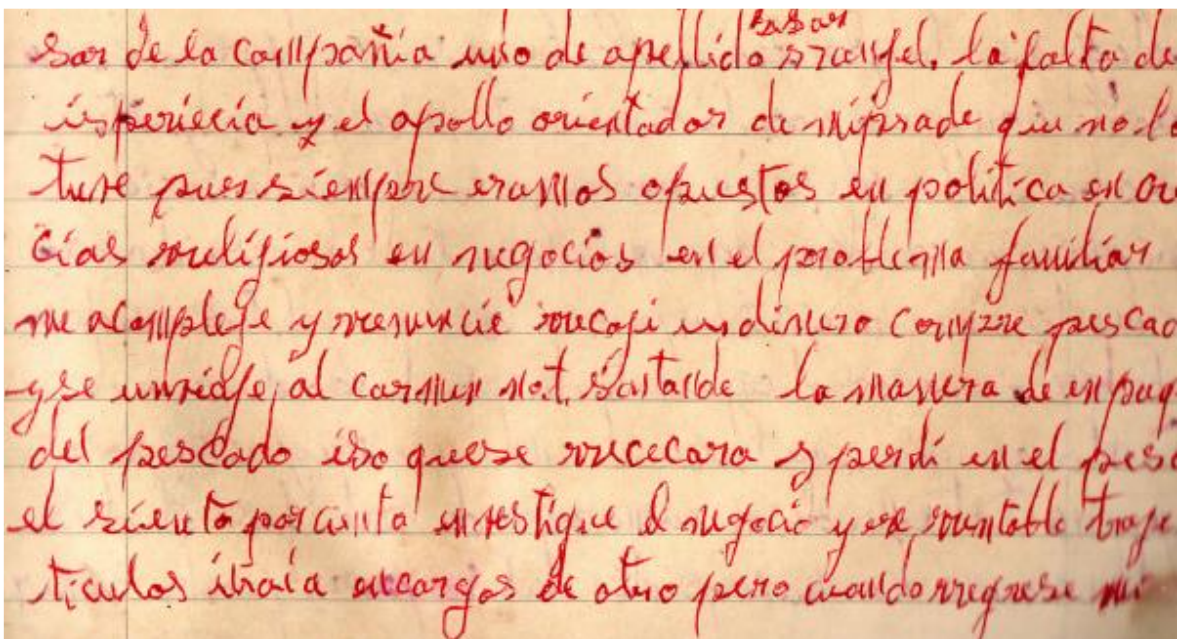 sar de la compañia uno de apellido rrangel, la falta de
isperiecia y el apollo orientador de mi
tuve pues siempre eramos opuestos en politica en
cias rreligiosas en negocios en el problema familiar
me acompleje y rrenuncie rrecoji un dinero compre pescad
y se un viaje al carmen
la manera de enpaq
del pescado iso que se rrececara y perdi en el peso
el por cinto envestigue el negocio y era rrentable traje
ticulos traia encargos de otro pero cuando rregrese mi